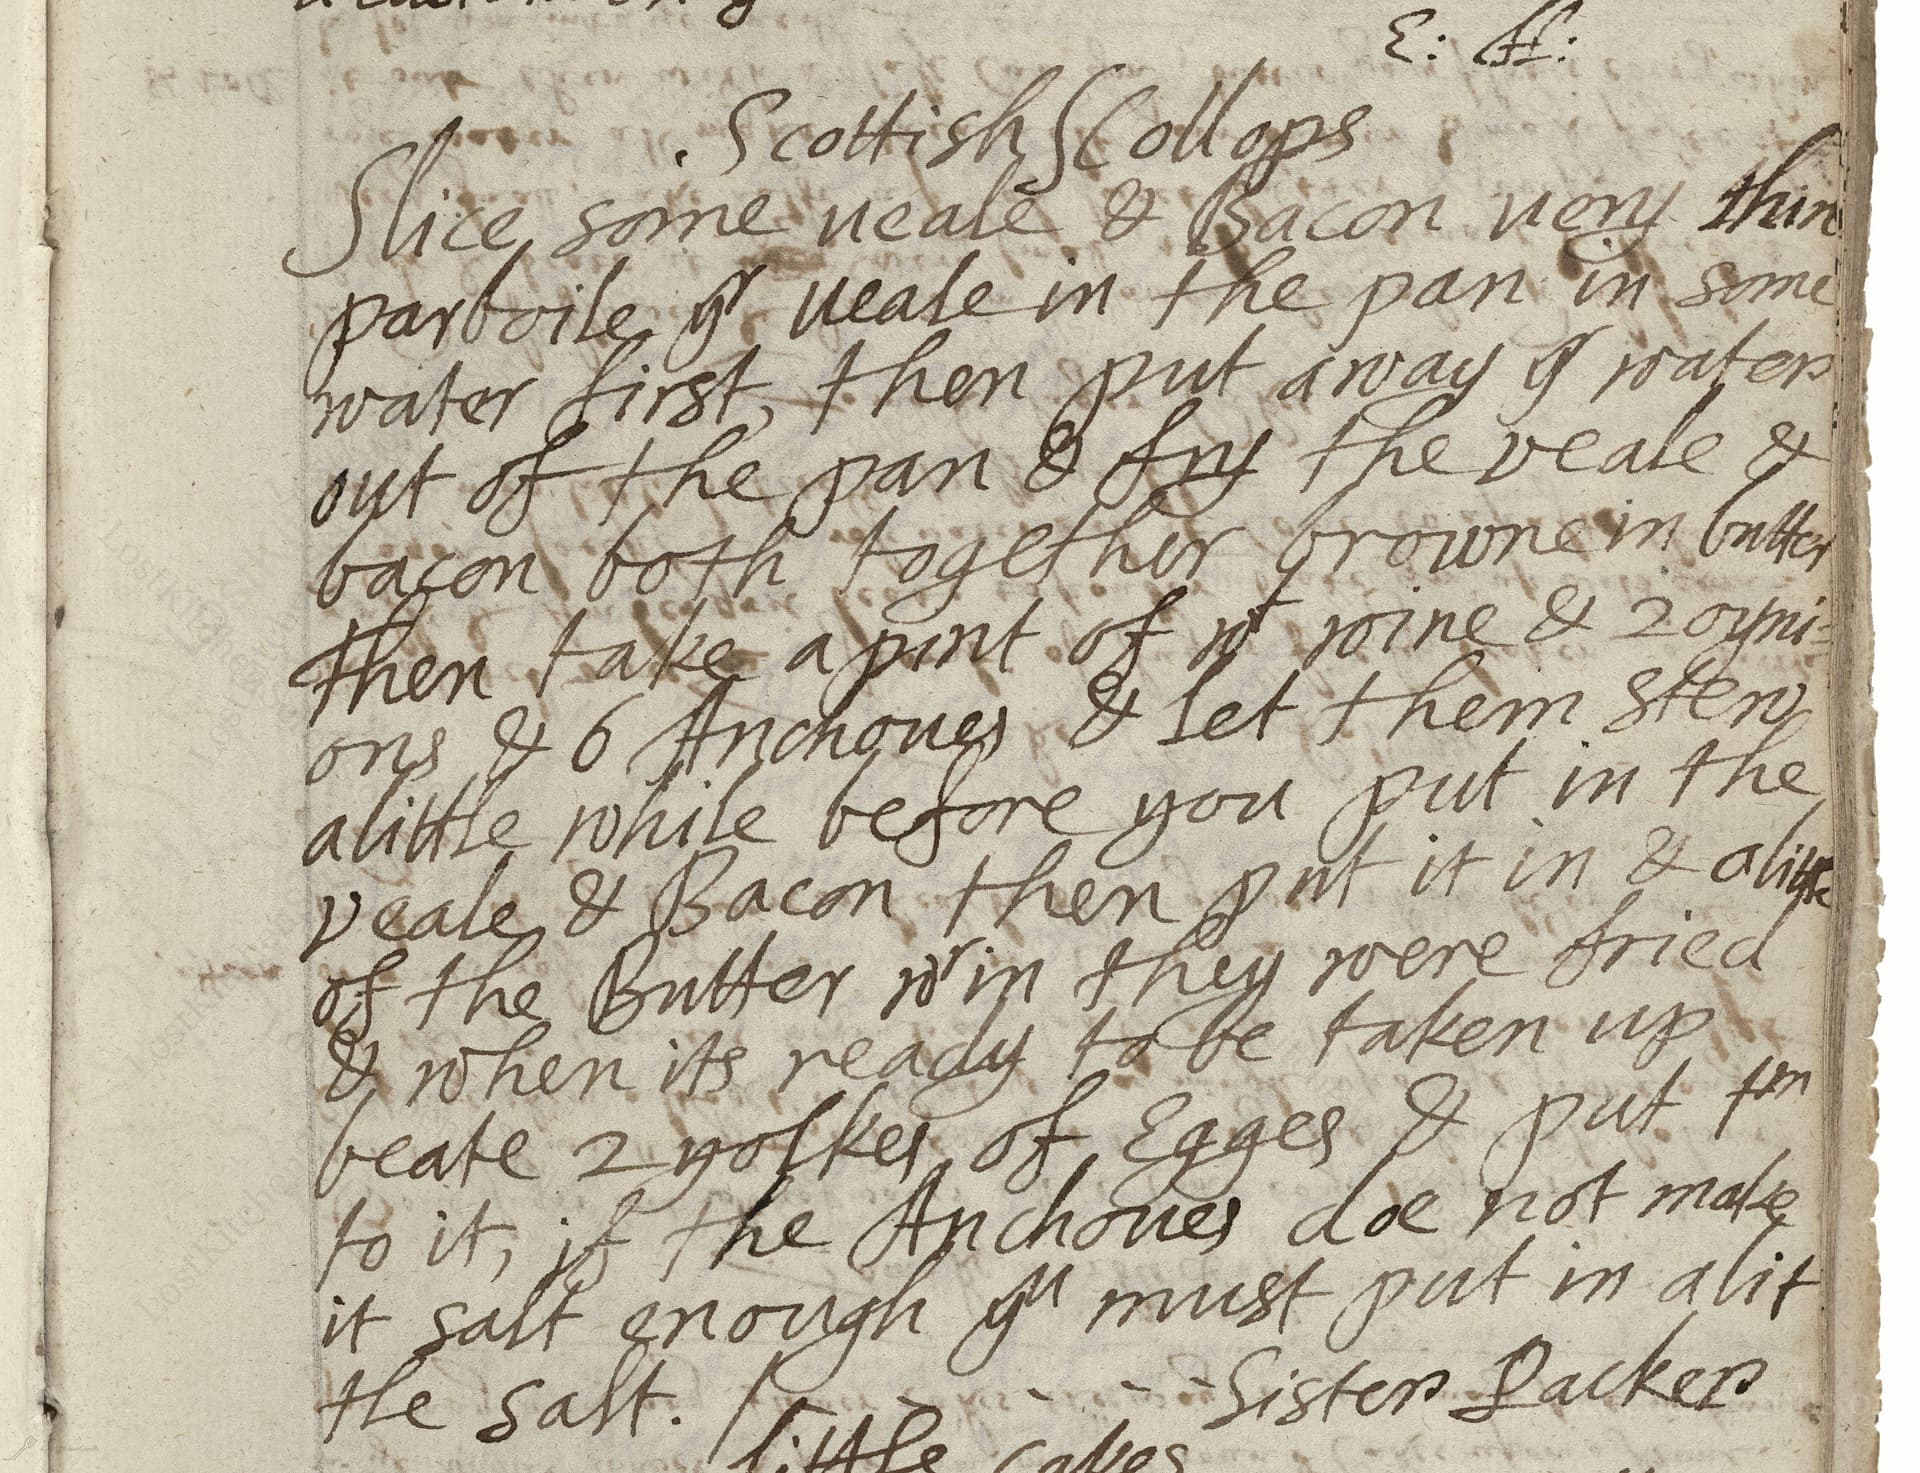 E: H:
. Scottish Scollops
Slice some ueale & Bacon uery thin
parboile yr ueale in the pan in some
water first, then put away yr water
out of the pan & fry the veale &
bacon both together browne in butter
then take a pint of wt wine & 2 oyni=
ons & 6 Anchoues & let them stew
alittle while before you put in the
veale & Bacon then put it in & alittle
of the Butter wrin they were fried
& when its ready to be taken up
beate 2 yolkes of Egges & put tm
to it, if the Anchoues doe not make
it salt enough yu must put in alit
tle salt. /- - - - - Sister Packer
little cakes